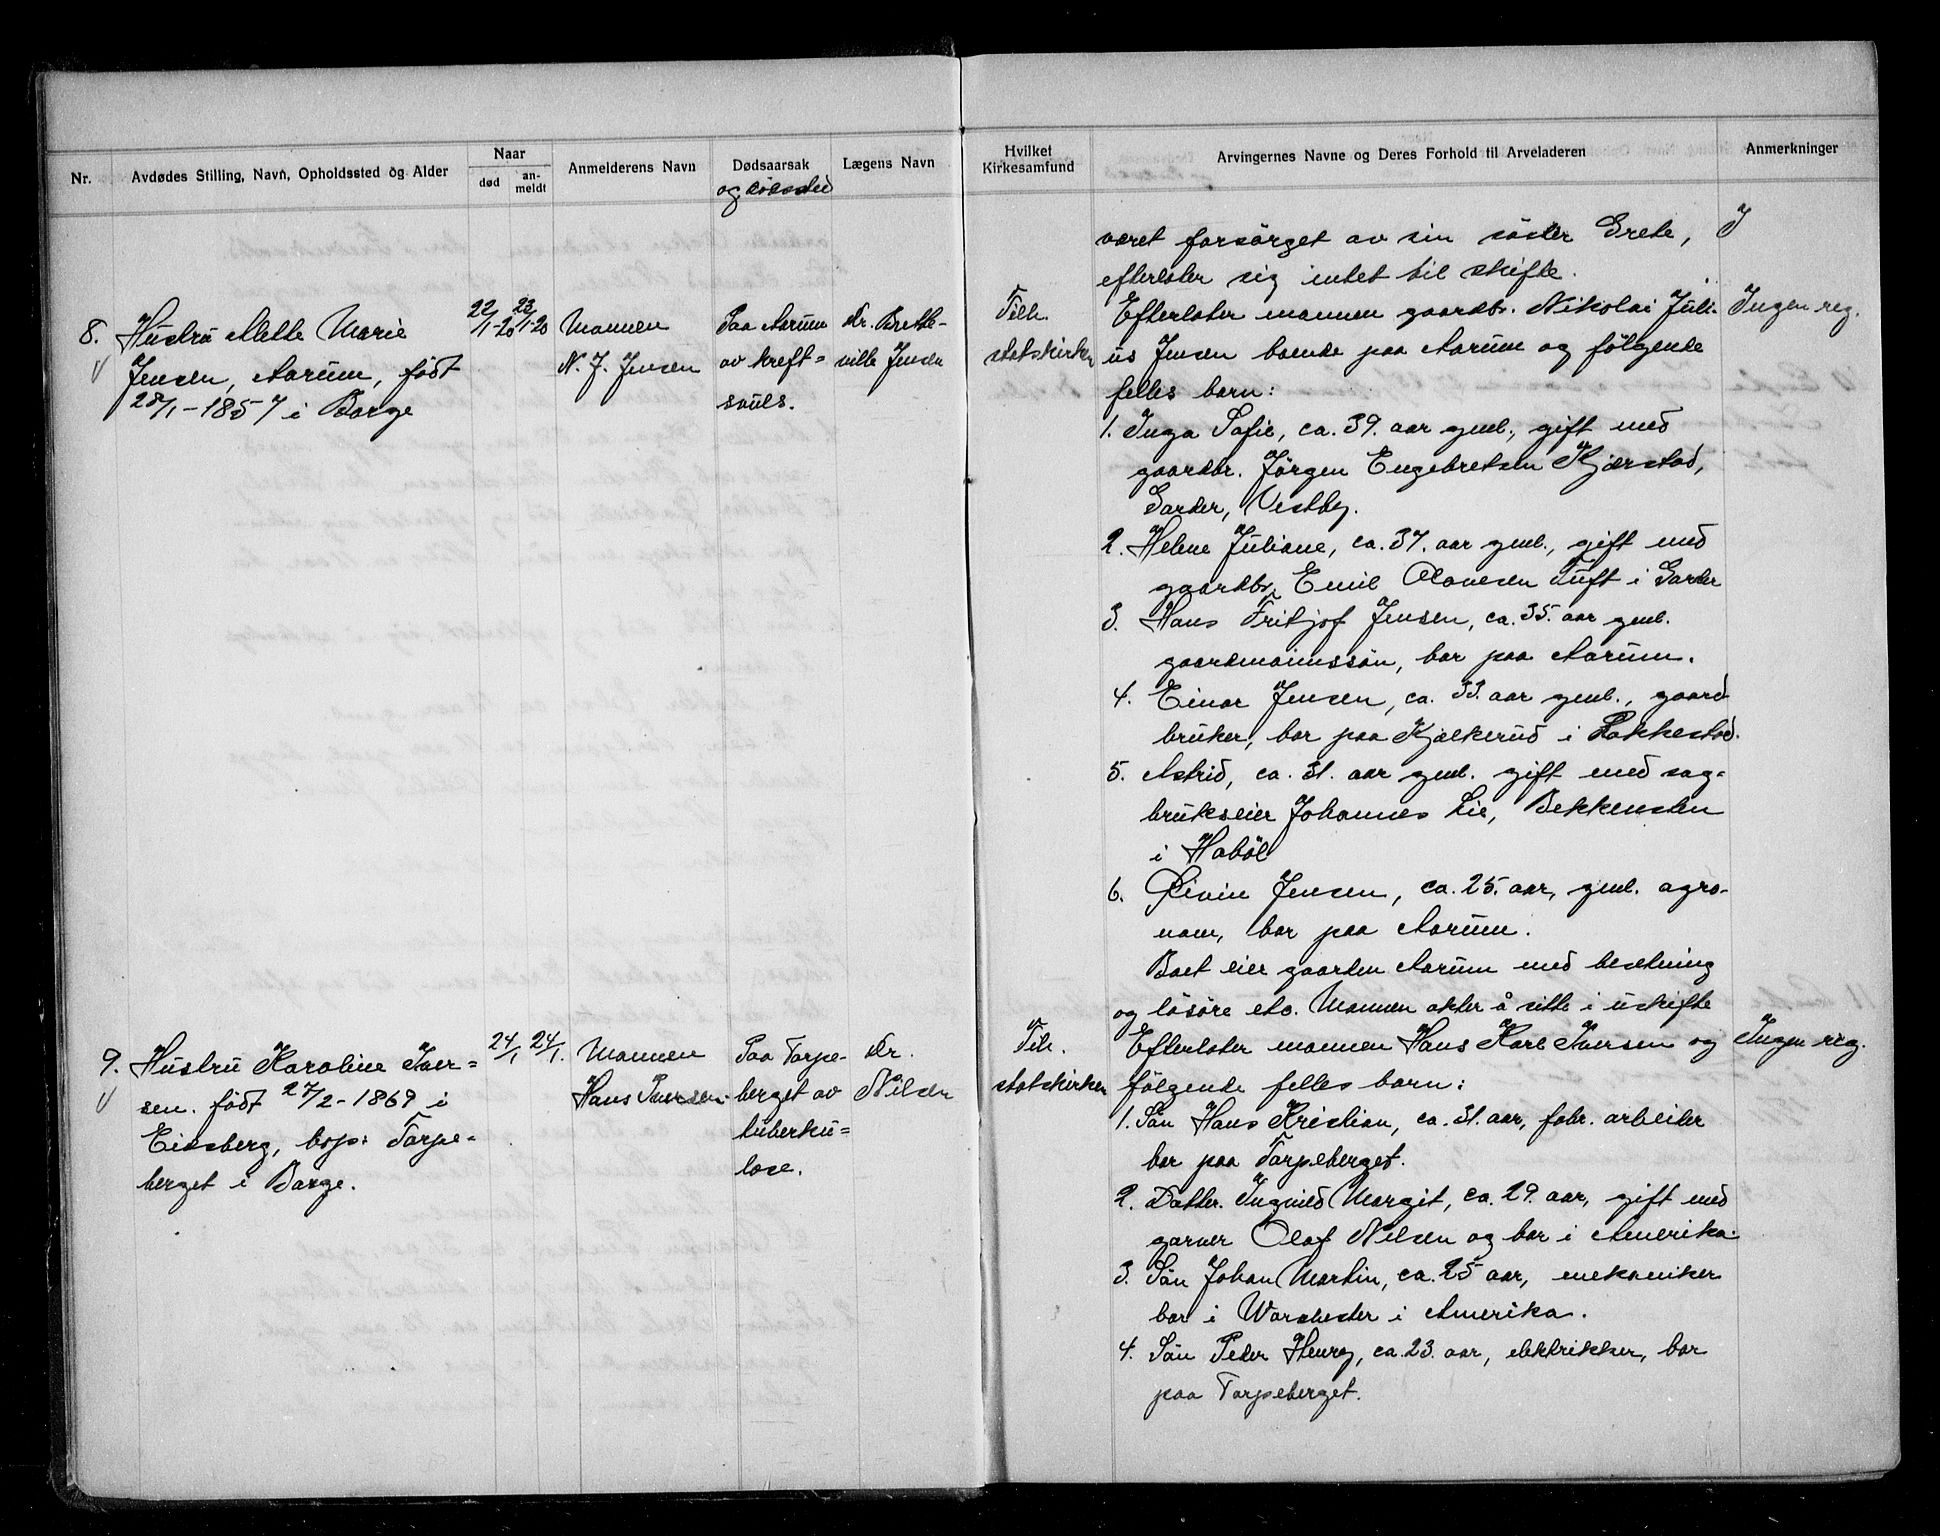 Nr.
Avdødes Stilling, Navn, Opholdssted og Alder
Naar
død
an-
meldt
Anmelderens Navn
Dødsaarsak
og dödssted
Lægens Navn
8. Hustru Mette Marie
Jensen, Aarum, født
28/1-1857 i Borge
22/1-20
23/1-20
Mannen
N. J. Jensen
Paa Aarum
av kreft-
svuls.
dr. Brette-
ville Jensen
9. Hustru Karoline Iver-
sen. født 27/2-1869 i
Eidsberg, bop: Torpe-
berget i Borge.
24/1
24/1.
Mannen
Hans Iversen
Paa Torpe-
berget av
tuberku-
lose.
dr.
Nilsen
Hvilket
Kirkesamfund
Arvingernes Navne og Deres Forhold til Arveladeren
Anmerkninger
været forsörget av sin söster Grete,
efterlater sig intet til skifte.
Tilh.
statskirken
Efterlater mannen gaardbr. Nikolai Juli-
us Jensen boende paa Aarum og følgende
felles barn:
Ingen reg.
1. Inga Sofie, ca. 39. aar gml., gift med
gaardbr. Jörgen Engebretsen Kjærstad,
Garder, Vestby.
2. Helene Juliane, ca. 37. aar gml., gift med
gaardbr. Emil Olavesen Tuft i Garder
3. Hans Fritjof Jensen, ca. 35. aar gml.
gaardmannssön, bor paa Aarum.
4. Einar Jensen, ca. 33. aar gml., gaard
bruker, bor paa Kjølkerud i Rakkestad.
5. Astrid, ca. 31. aar gml. gift med sag-
brukseier Johannes Lie, Bekkensten
i Haböl
6. Øivin Jensen, ca. 25. aar, gml. agro-
nom, bor paa Aarum.
Boet eier gaarden Aarum med besetning
og lösöre etc. Mannen akter å sitte i uskifte
Tilh.
statskirken
Efterlater mannen Hans Karl Iversen og
følgende felles barn:
Ingen reg.
1. Sön Hans Kristian, ca. 31. aar, fabr. arbeider
bor paa Torpeberget.
2. Datter. Ingvild Margit, ca. 29. aar, gift med
garver Olaf Nilsen og bor i Amerika.
3. Sön Johan Martin, ca. 25 aar, mekaniker
bor i Worchester i Amerika.
4. Sön Peder Henry, ca. 23. aar, elektrikker, bor
paa Torpeberget.